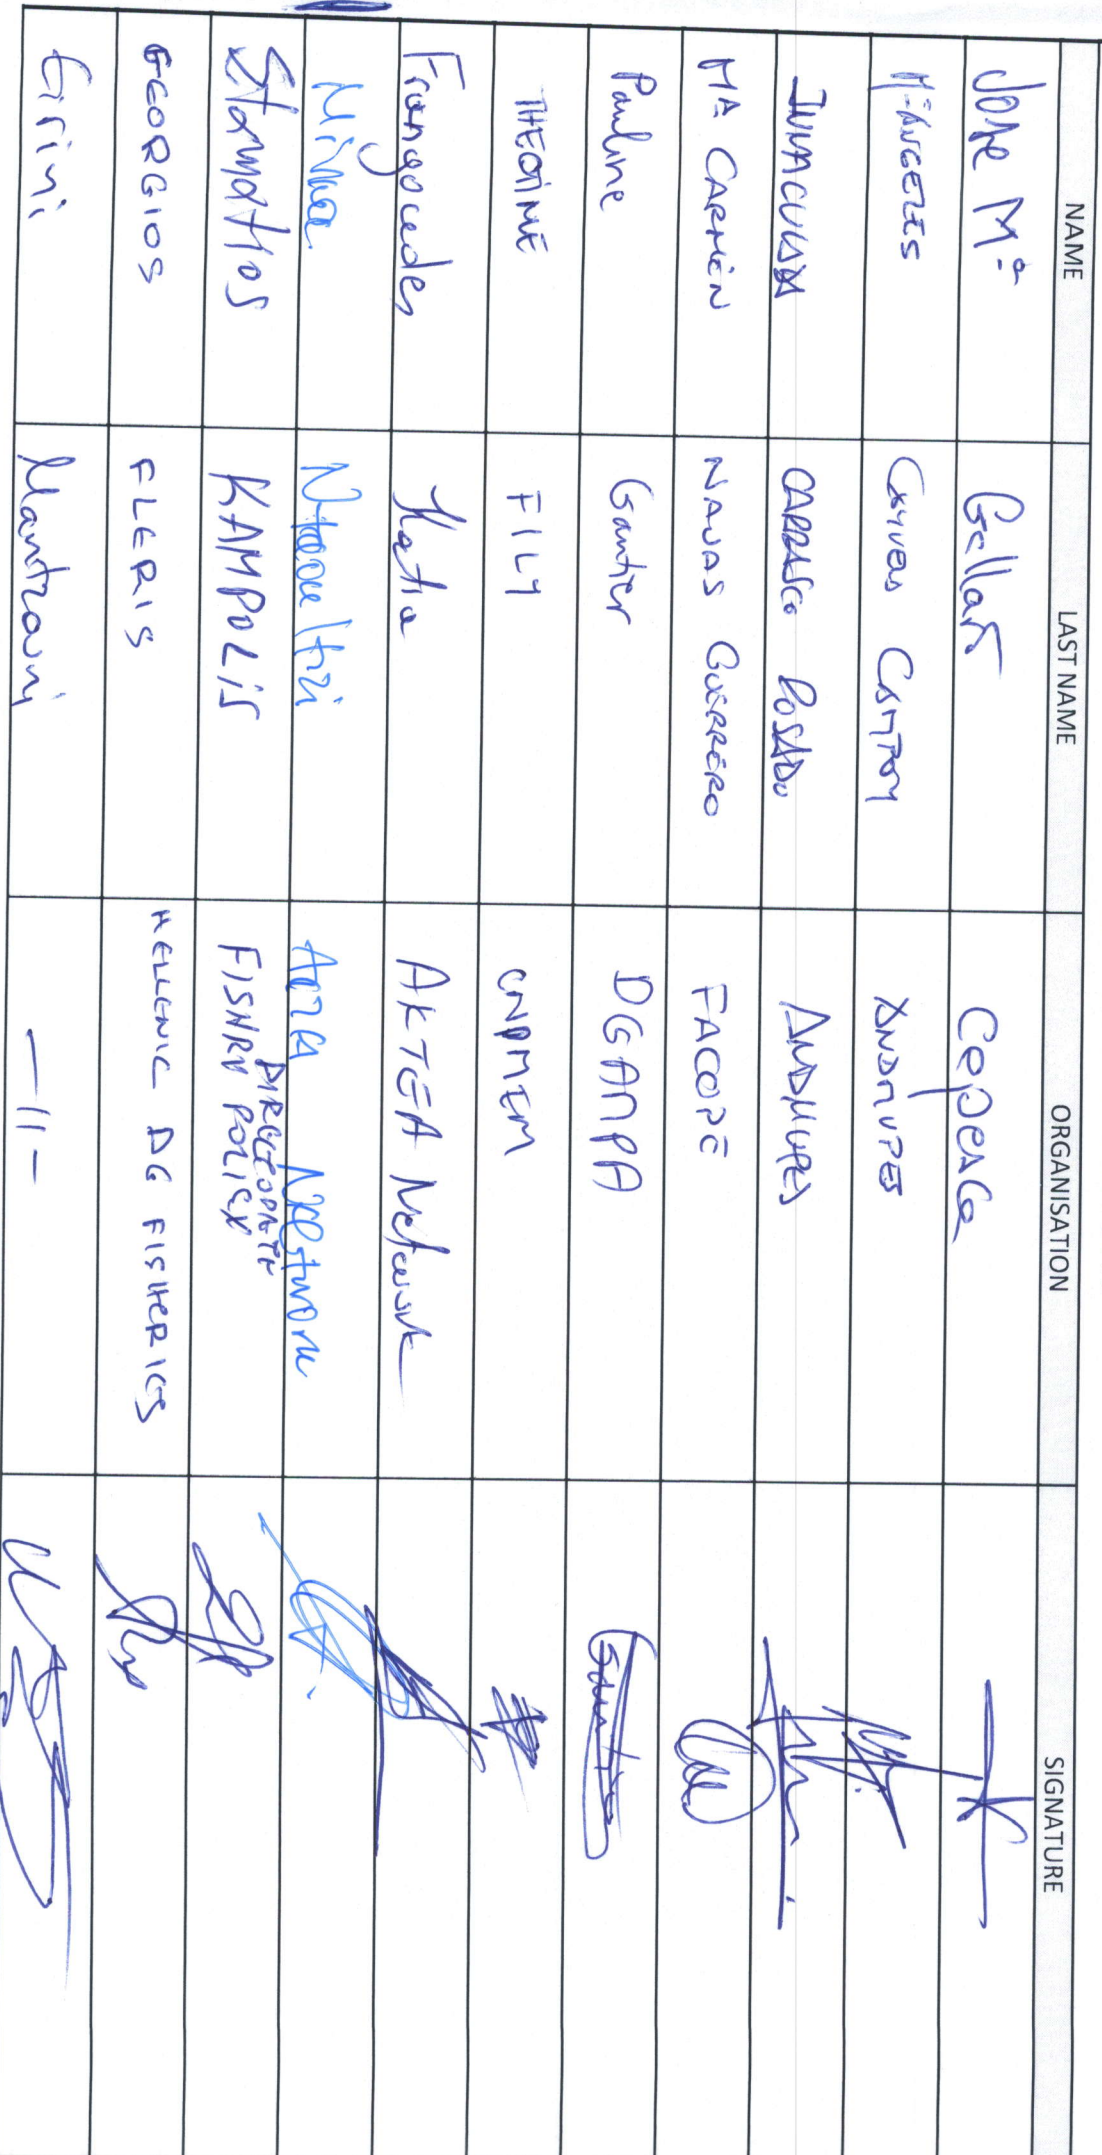 NAME LAST NAME ORGANISATION SIGNATURE
Jose Mª Gallart Cepesca
Mª ANGELES CAYUELA CANTON ANDMUPES
INMACULADA CARRASCO POSADO ANDMUPES
Mª CARMEN NAVAS GUERRERO FACOPE
Pauline Gantier DGAMPA
THEOTIME FILY CNPMEM
Frangoudes Katia AKTEA Network
Stamatios KAMPOLIS DIRECTORATE FISHRY POLICY
GEORGIOS FLERIS HELLENIC DG FISHERIES
Eirini Mantzouni —11—